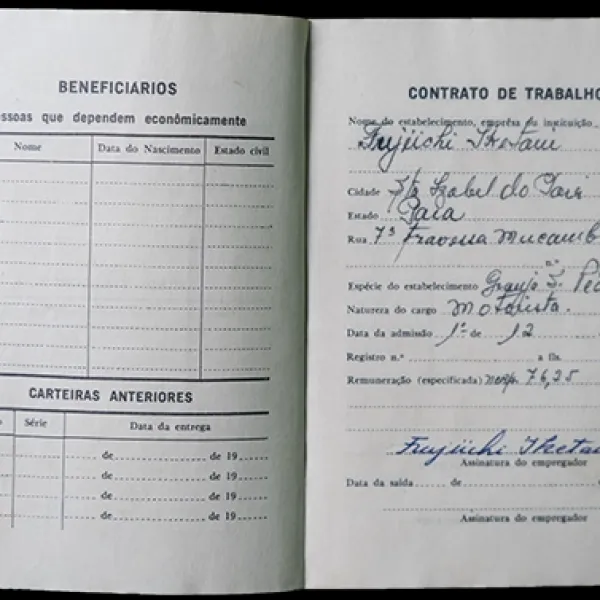 BENEFICIARIOS
ssoas que dependem econômicamente
Nome Data do Nascimento Estado civil
CARTEIRAS ANTERIORES
Série Data da entrega
de de 19
de de 19
de de 19
de de 19
CONTRATO DE TRABALHO
Nome do estabelecimento, emprêsa ou instituição
Fujiichi Iketani
Cidade Sta Izabel do Pará
Estado Pará
Rua 7ª Travessa Mucamb
n.º
Espécie do estabelecimento Granja S.
Natureza do cargo Motorista.
Data da admissão 1º de 12
Registro n.º a fls.
Remuneração (especificada) 76,25
Fujiichi Iketa
Assinatura do empregador
Data da saída de
Assinatura do empregador